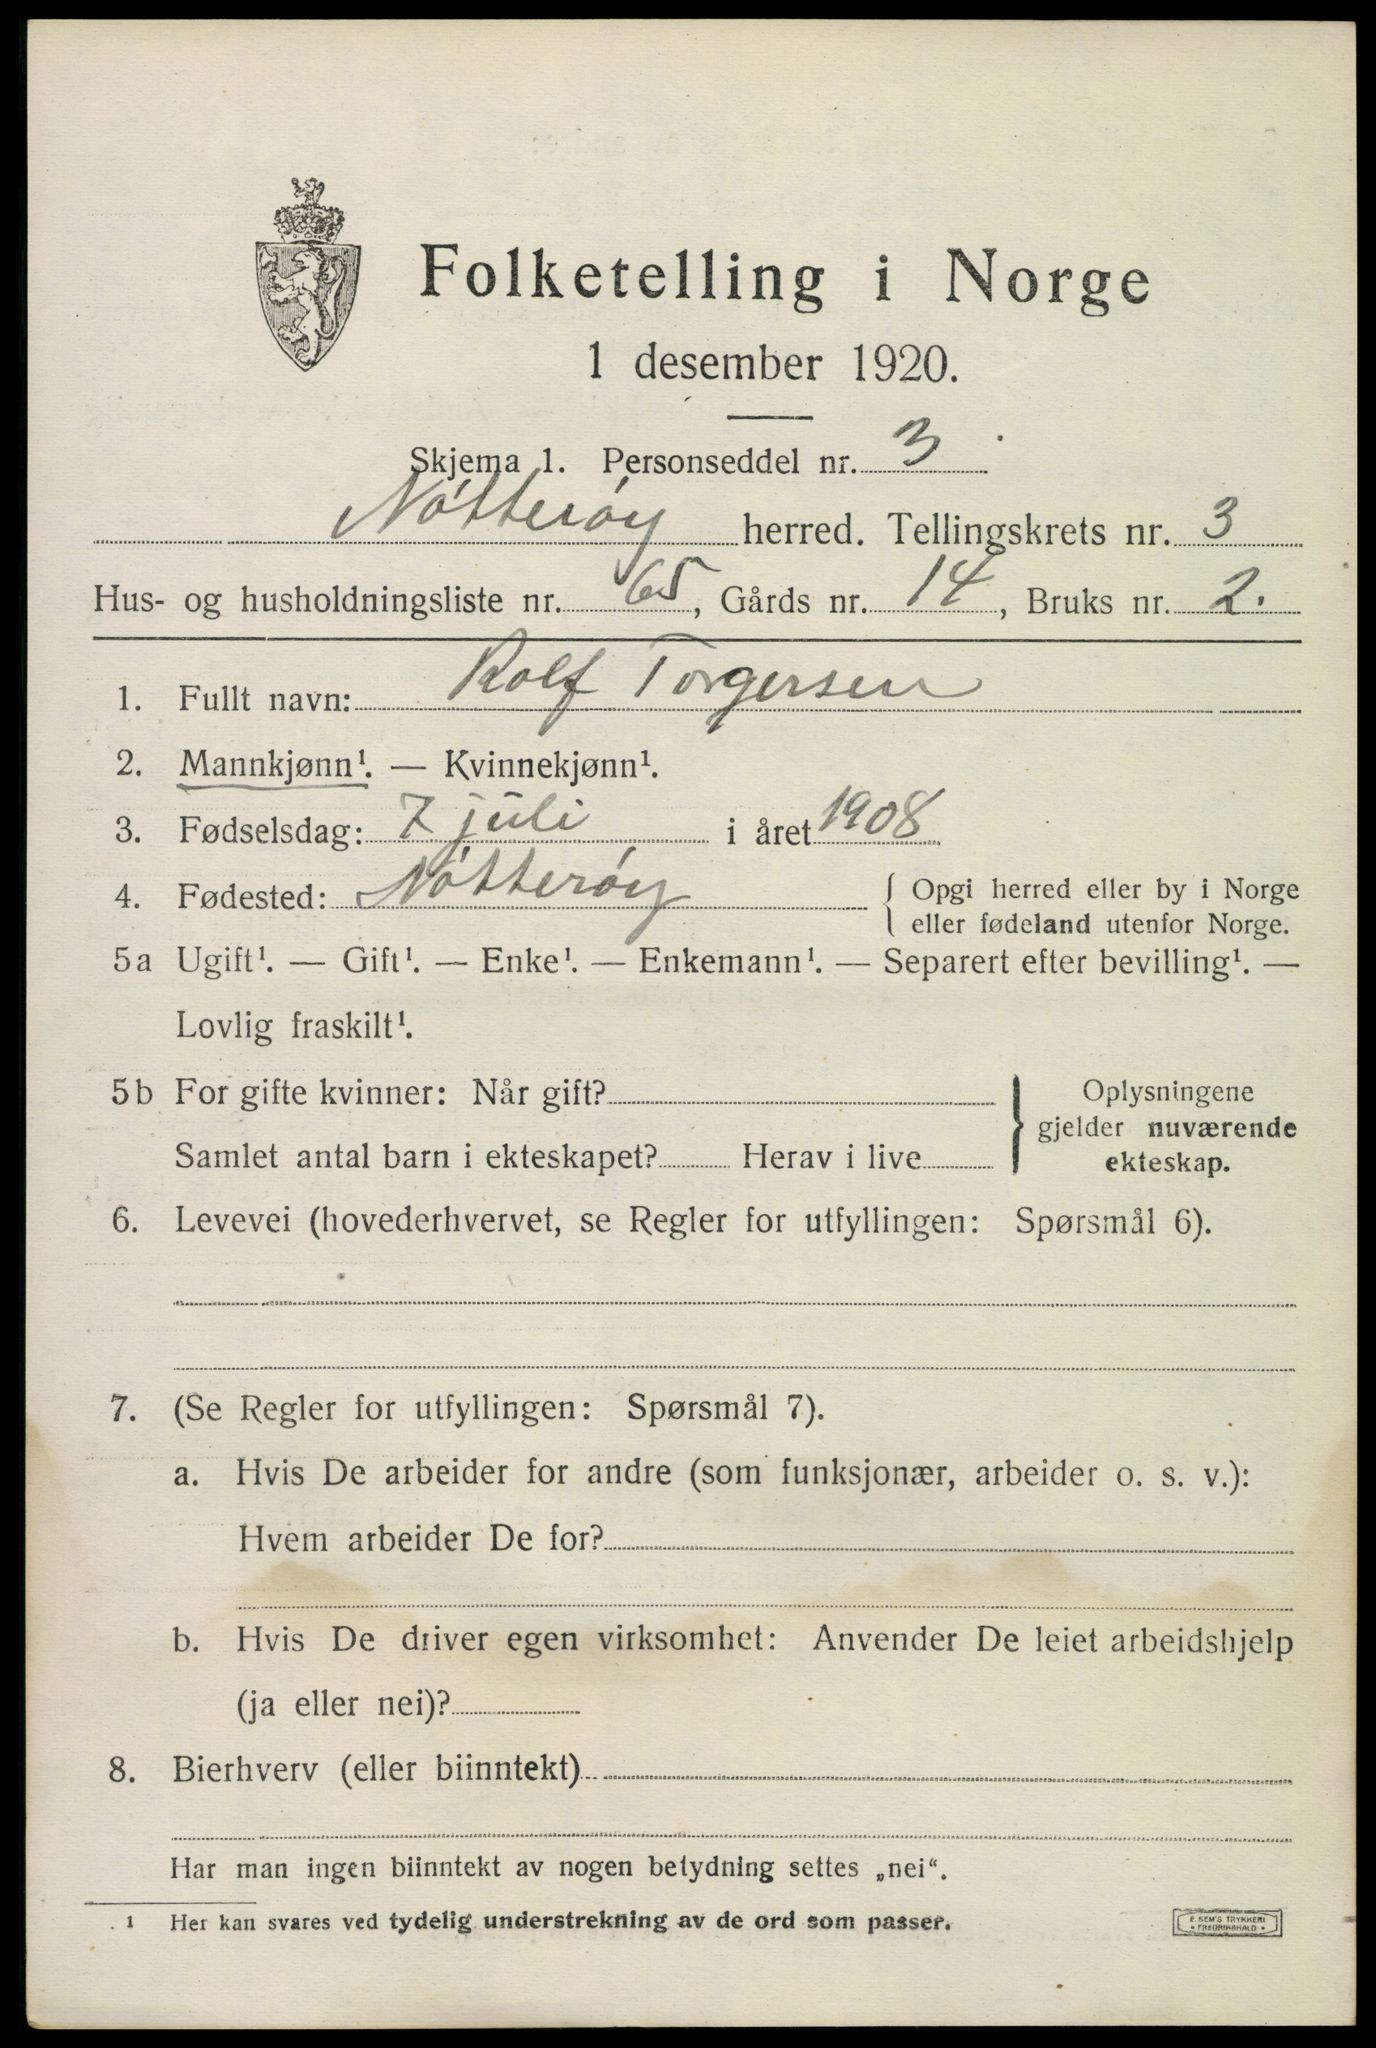 Folketelling i Norge
1 desember 1920.
Skjema 1. Personseddel nr. 3
Nötteröy herred. Tellingskrets nr. 3
Hus- og husholdningsliste nr. 65, Gårds nr. 14, Bruks nr. 2.
1. Fullt navn: Rolf Torgersen
2. Mannkjønn¹. — Kvinnekjønn¹.
3. Fødselsdag: 7 juli i året 1908
4. Fødested: Nötteröy { Opgi herred eller by i Norge
eller fødeland utenfor Norge.
5a Ugift¹. — Gift¹. — Enke¹. — Enkemann¹. — Separert efter bevilling¹. —
Lovlig fraskilt¹.
5b For gifte kvinner: Når gift? } Oplysningene
gjelder nuværende
Samlet antal barn i ekteskapet? Herav i live ekteskap.
6. Levevei (hovederhvervet, se Regler for utfyllingen: Spørsmål 6).
7. (Se Regler for utfyllingen: Spørsmål 7).
a. Hvis De arbeider for andre (som funksjonær, arbeider o. s. v.):
Hvem arbeider De for?
b. Hvis De driver egen virksomhet: Anvender De leiet arbeidshjelp
(ja eller nei)?
8. Bierhverv (eller biinntekt)
Har man ingen biinntekt av nogen betydning settes „nei“.
¹ Her kan svares ved tydelig understrekning av de ord som passer.
E. SEM'S TRYKKERI
• FREDRIKSHALD •